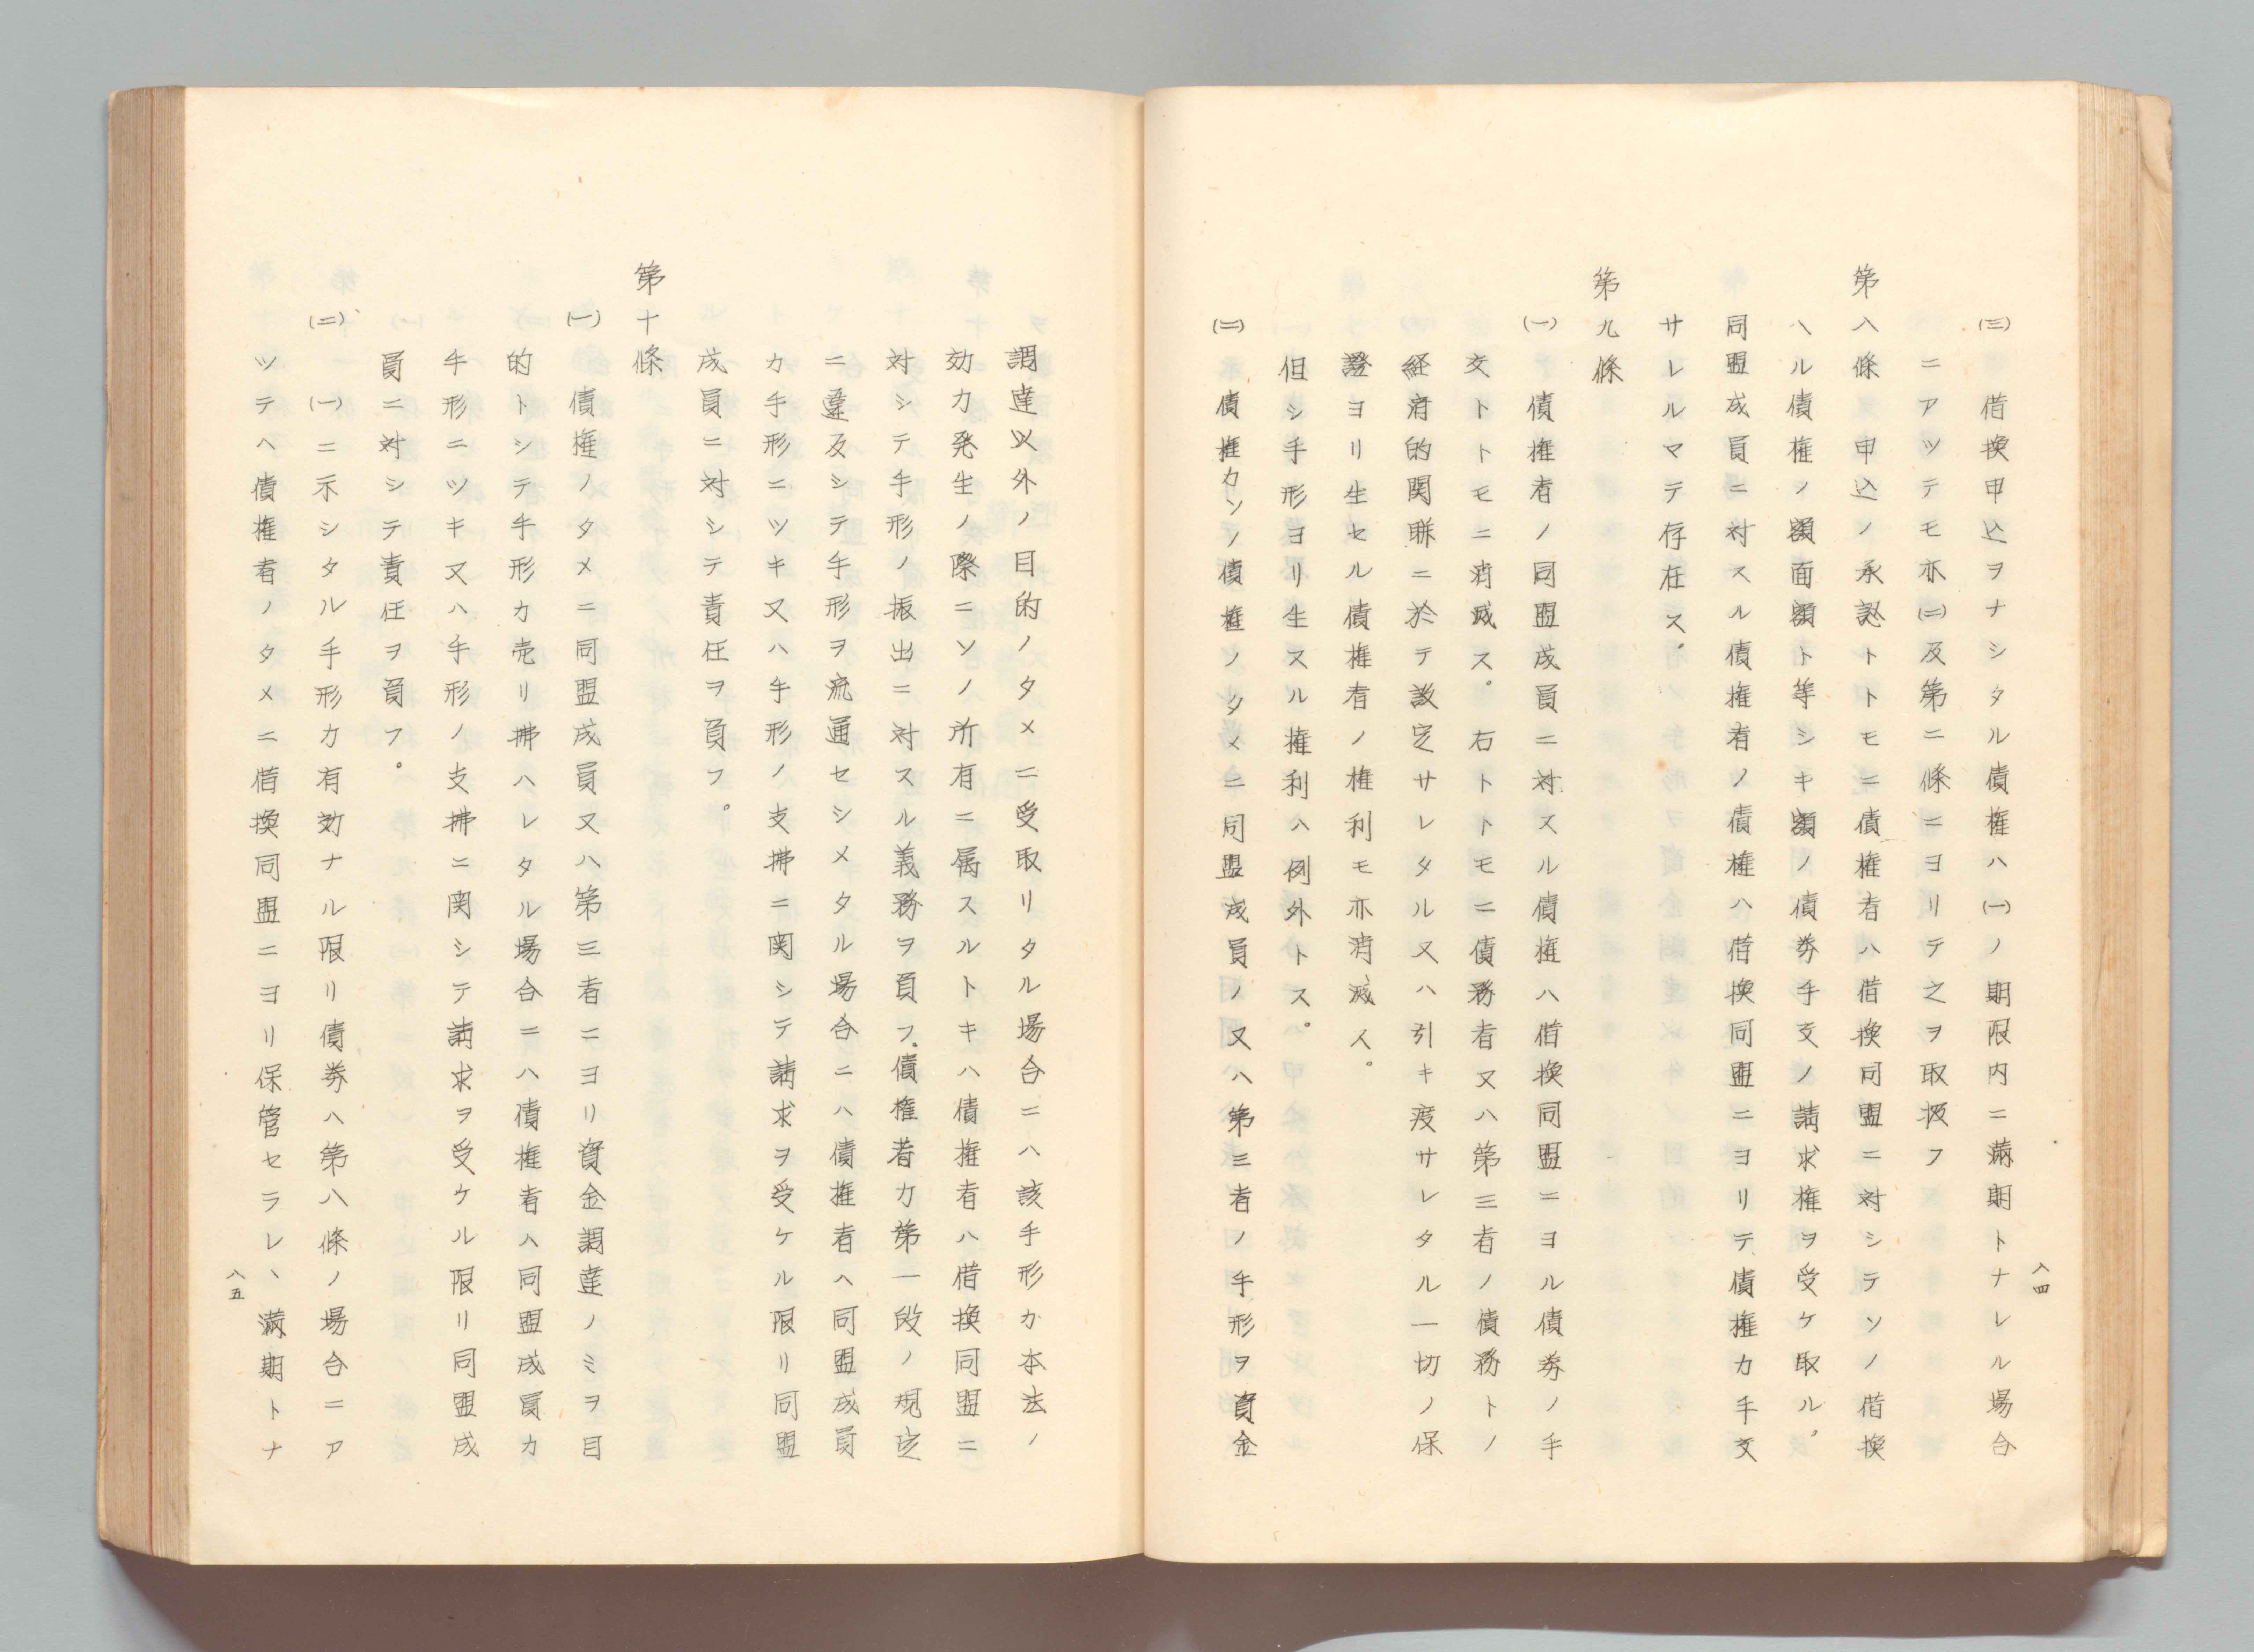 八四
(三) 借換申込ヲナシタル債権ハ(一)ノ期限内ニ満期トナレル場合
ニアツテモ亦(二)及第二條ニヨリテ之ヲ取扱フ
第八條 申込ノ承認トトモニ債権者ハ借換同盟ニ対シテソノ借換
ヘル債権ノ額面額ト等シキ額ノ債券手交ノ請求権ヲ受ケ取ル。
同盟成員ニ対スル債権者ノ債権ハ借換同盟ニヨリテ債権カ手交
サレルマテ存在ス。
第九條
(一) 債権者ノ同盟成員ニ対スル債権ハ借換同盟ニヨル債券ノ手
交トトモニ消滅ス。右トトモニ債務者又ハ第三者ノ債務トノ
経済的関聯ニ於テ設定サレタル又ハ引キ渡サレタル一切ノ保
證ヨリ生セル債権者ノ権利モ亦消滅ス。
但シ手形ヨリ生スル権利ハ例外トス。
(二) 債権カソノ債権ノタメニ同盟成員ノ又ハ第三者ノ手形ヲ資金
調達以外ノ目的ノタメニ受取リタル場合ニハ該手形カ本法ノ
効力発生ノ際ニソノ所有ニ属スルトキハ債権者ハ借換同盟ニ
対シテ手形ノ振出ニ対スル義務ヲ負フ、債権者カ第一段ノ規定
ニ違反シテ手形ヲ流通セシメタル場合ニハ債権者ヘ同盟成員
カ手形ニツキ又ハ手形ノ支拂ニ関シテ請求ヲ受ケル限リ同盟
成員ニ対シテ責任ヲ負フ。
第十條
(一) 債権ノタメニ同盟成員又ハ第三者ニヨリ資金調達ノミヲ目
的トシテ手形カ売リ拂ハレタル場合ニハ債権者ヘ同盟成員カ
手形ニツキ又ハ手形ノ支拂ニ関シテ請求ヲ受ケル限リ同盟成
員ニ対シテ責任ヲ負フ。
(二) (一)ニ示シタル手形カ有効ナル限リ債券ハ第八條ノ場合ニア
ツテヘ債権者ノタメニ借換同盟ニヨリ保管セラレ、満期トナ
八五